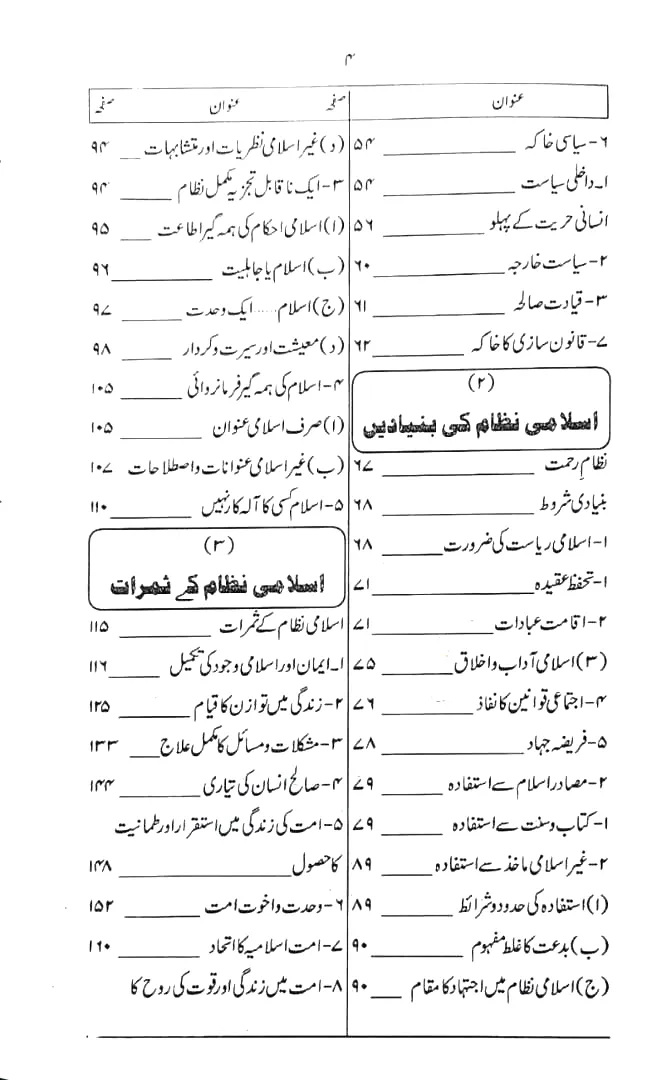 ۴
عنوان صفحہ
۶- سیاسی خاکہ ۵۴
۱- داخلی سیاست ۵۴
انسانی حریت کے پہلو ۵۶
۲- سیاست خارجہ ۶۰
۳- قیادت صالحہ ۶۱
۷- قانون سازی کا خاکہ ۶۲
(۲)
اسلامی نظام کی بنیادیں
نظام رحمت ۶۷
بنیادی شروط ۶۸
۱- اسلامی ریاست کی ضرورت ۶۸
۱- تحفظ عقیدہ ۷۱
۲- اقامت عبادات ۷۱
(۳) اسلامی آداب و اخلاق ۷۵
۴- اجتماعی قوانین کا نفاذ ۷۶
۵- فریضہ جہاد ۷۸
۲- مصادر اسلام سے استفادہ ۷۹
۱- کتاب و سنت سے استفادہ ۷۹
۲- غیر اسلامی ماخذ سے استفادہ ۸۹
(۱) استفادہ کی حدود و شرائط ۸۹
(ب) بدعت کا غلط مفہوم ۹۰
(ج) اسلامی نظام میں اجتہاد کا مقام ۹۰
عنوان صفحہ
(د) غیر اسلامی نظریات اور متشابہات ۹۴
۳- ایک ناقابل تجزیہ مکمل نظام ۹۴
(۱) اسلامی احکام کی ہمہ گیر اطاعت ۹۵
(ب) اسلام یا جاہلیت ۹۶
(ج) اسلام ..... ایک وحدت ۹۷
(د) معیشت اور سیرت و کردار ۹۸
۴- اسلام کی ہمہ گیر فرمانروائی ۱۰۵
(۱) صرف اسلامی عنوان ۱۰۵
(ب) غیر اسلامی عنوانات و اصطلاحات ۱۰۷
۵- اسلام کسی کا آلہ کار نہیں ۱۱۰
(۳)
اسلامی نظام کے ثمرات
اسلامی نظام کے ثمرات ۱۱۵
۱- ایمان اور اسلامی وجود کی تکمیل ۱۱۶
۲- زندگی میں توازن کا قیام ۱۲۵
۳- مشکلات و مسائل کا مکمل علاج ۱۳۳
۴- صالح انسان کی تیاری ۱۴۴
۵- امت کی زندگی میں استقرار اور طمانیت
کا حصول ۱۴۸
۶- وحدت و اخوت امت ۱۵۲
۷- امت اسلامیہ کا اتحاد ۱۶۰
۸- امت میں زندگی اور قوت کی روح کا